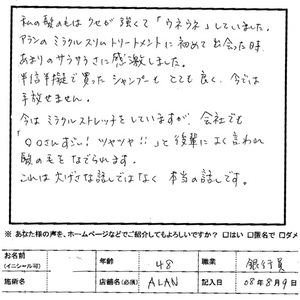 私の髪の毛はクセが強くて「ウネウネ」していました。
アランのミラクルスリムトリートメントに初めて出会った時、
あまりのサラサラさに感激しました。
半信半疑で買ったシャンプーもとても良く、今では
手放せません。
今はミラクルストレッチをしていますが、会社でも
「〇〇さんすごい!ツヤツヤ!!」と後輩によく言われ
髪の毛をなでられます。
これは大げさな話しではなく本当の話しです。
※ あなた様の声を、ホームページなどでご紹介してもよろしいですか? □はい □匿名で □ダメ
お名前 (イニシャル可) 年齢 48 職業 銀行員
施術名 店舗名(必須) ALAN 記入日 08年8月9日